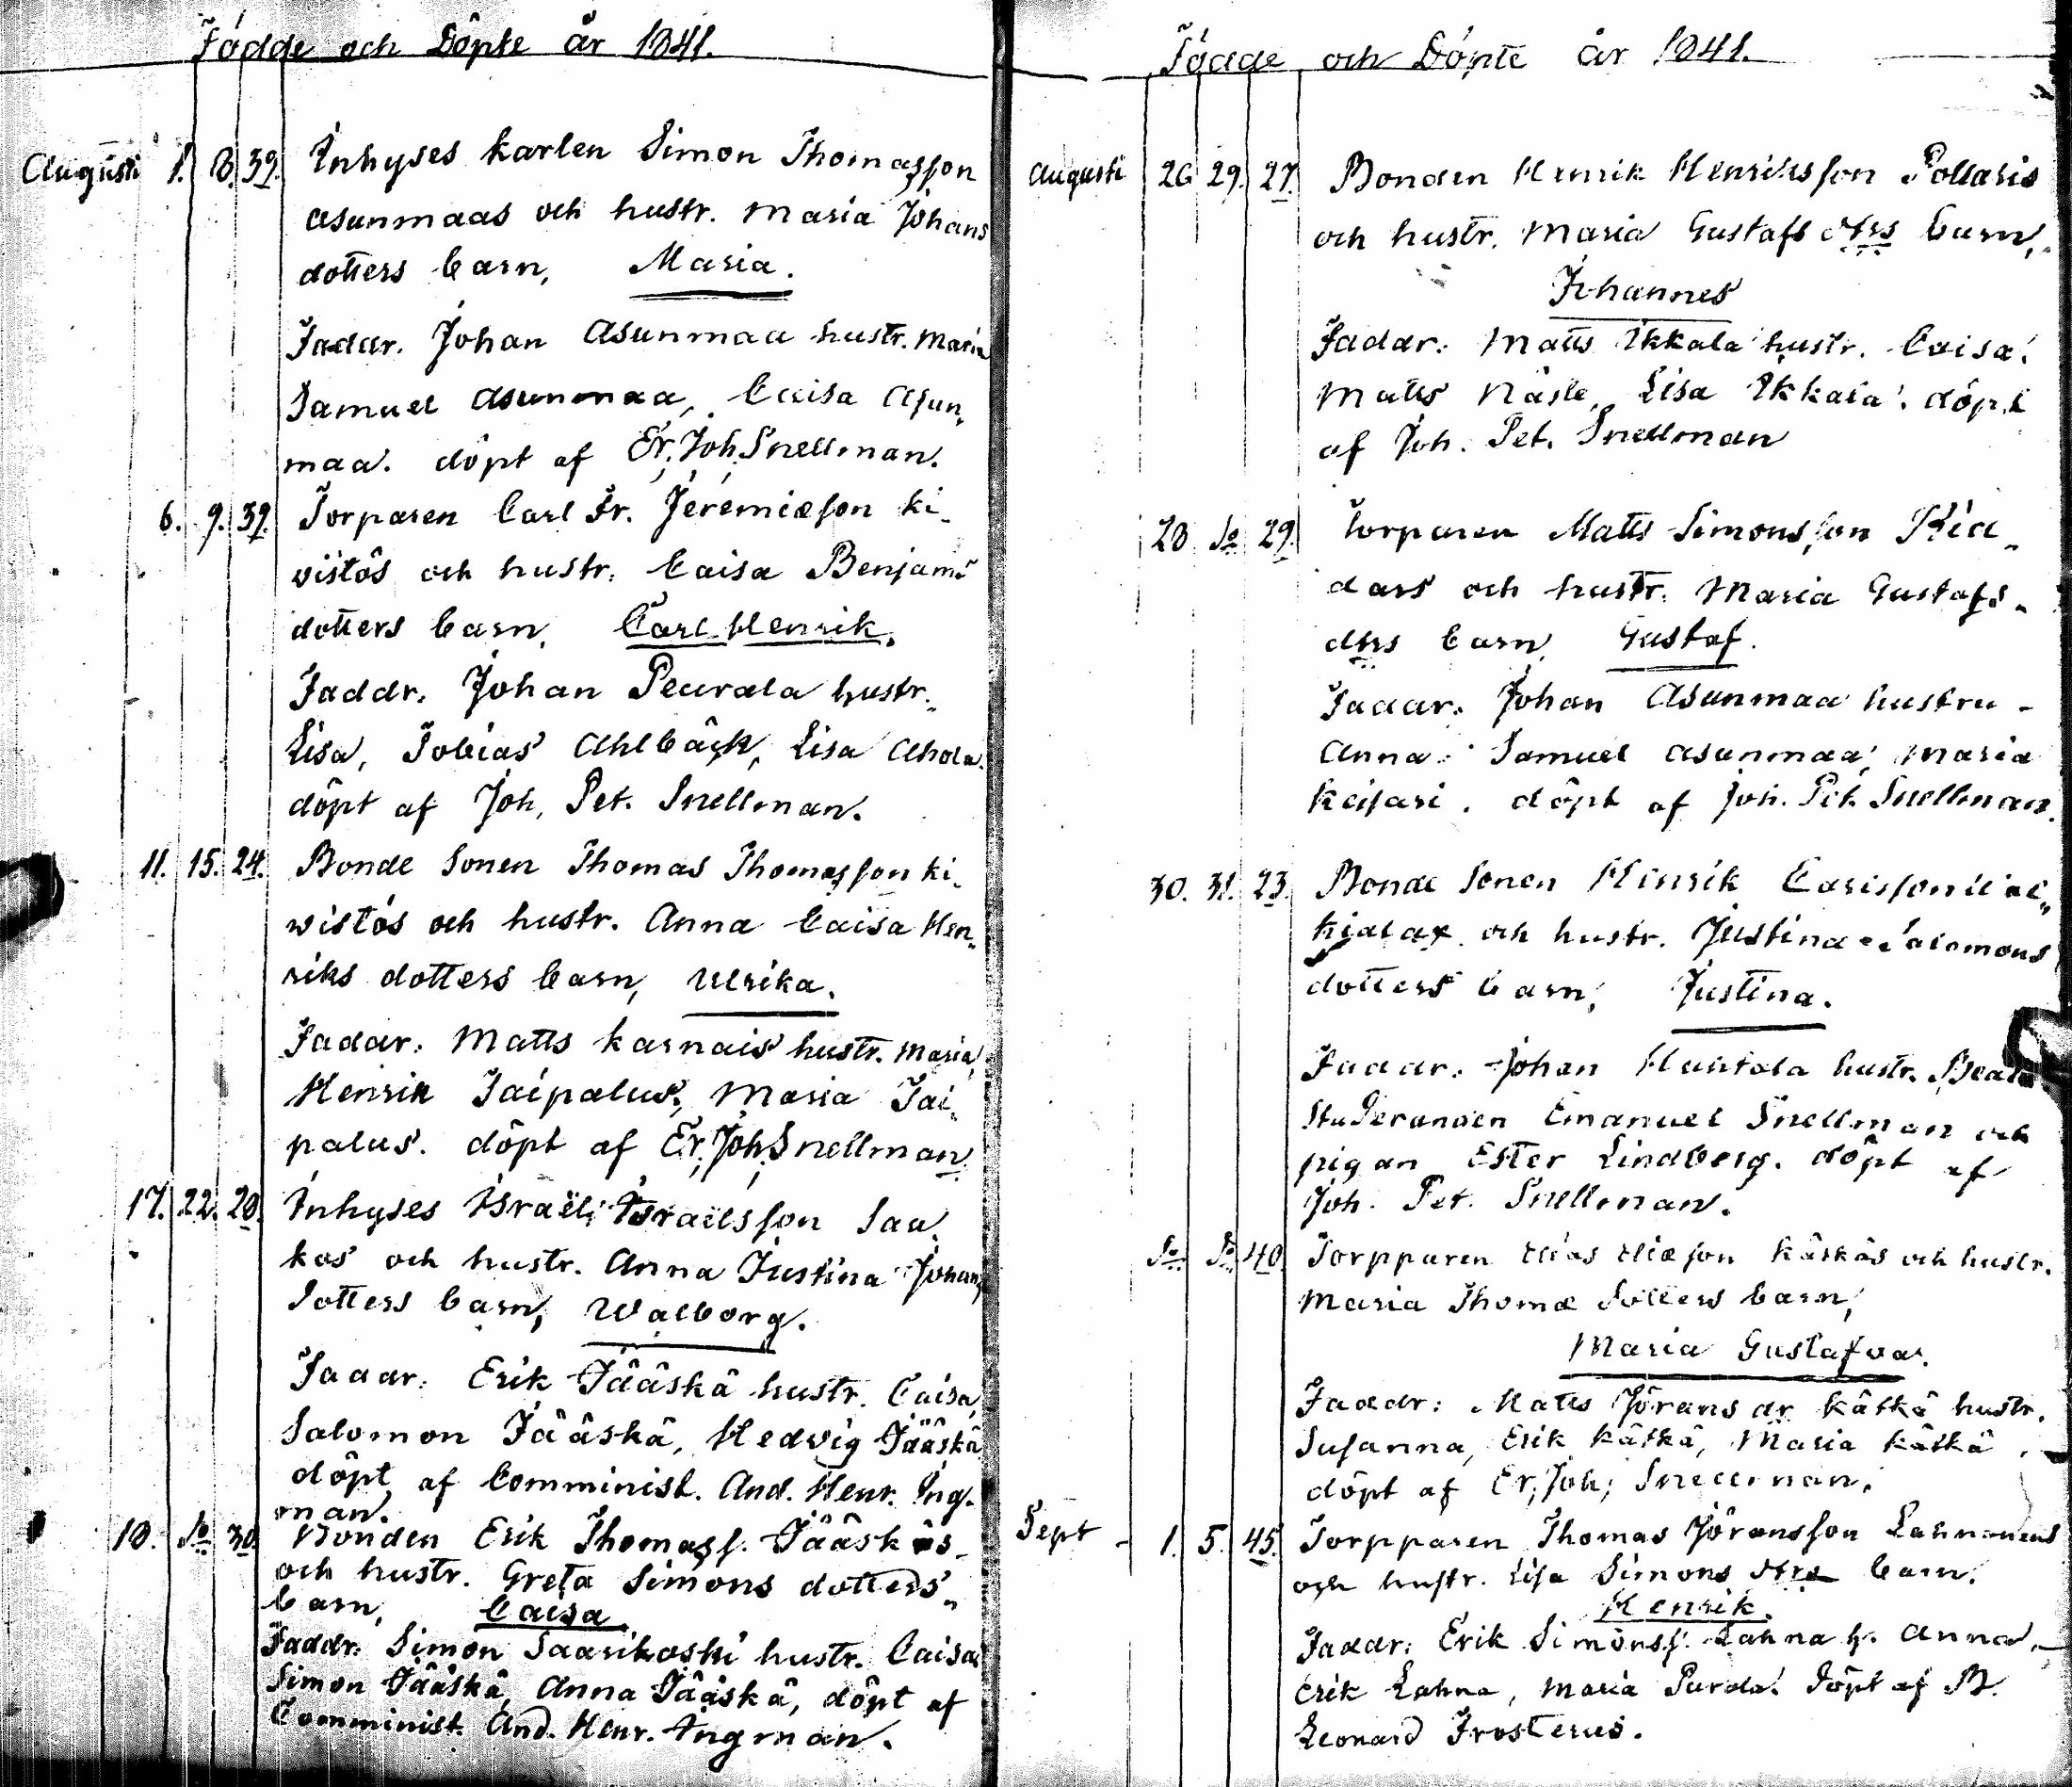 Födde och Döpte år 1841.
Augusti 1. 8. 39. Inhyses karlen Simon Thomasson
Asunmaas och hustr. Maria Johans
dotters barn, Maria.
Faddr. Johan Asunmaa hustr. Maria
Samuel Asunmaa, Caisa Asun,
maa. döpt af Er. Joh. Snellman.
6. 9. 39. Torparen Carl Fr. Jeremiæson Ki-
vistös och hustr. Caisa Benjams
dotters barn, Carl Henrik.
Faddr. Johan Peurala hustr.
Lisa, Tobias Ahlbäck, Lisa Ahola.
döpt af Joh. Pet. Snellman.
11. 15. 24. Bonde Sonen Thomas Thomasson Ki-
wistös och hustr. Anna Caisa Hen-
riks dotters barn, Ulrika.
Faddr. Matts Karnais hustr. Maria,
Henrik Taipalus, Maria Tai-
palus. döpt af Er. Joh. Snellman
17. 22. 20. Inhyses Israël Israëlsson Sau
kos och hustr. Anna Justina Johans
dotters barn, Walborg.
Faddr. Erik Jääskä hustr. Caisa,
Salomon Jääskä, Hedvig Jääskä
döpt af Comminist. And. Henr. Ing-
man.
18. do 30. Bonden Erik Thomass. Jääskäs
och hustr. Greta Simons dotters
barn, Caisa
Faddr. Simon Saarikoski hustr. Caisa
Simon Jääskä, Anna Jääskä, döpt af
Comminist. And. Henr. Ingman.
Födde och Döpte år 1841.
Augusti 26 29. 27. Bonden Henrik Henriksson Pollaris
och hustr. Maria Gustafs dtrs barn,
Johannes
Faddr. Matts Ikkala hustr. Caisa.
Matts Näsle, Lisa Ikkala. döpt
af Joh. Pet. Snellman
28 do 29. Torparen Matts Simonsson Rid
dars och hustr. Maria Gustafs-
dtrs barn, Gustaf.
Faddr. Johan Asunmaa hustru
Anna. Samuel Asunmaa, Maria
Keisari. döpt af Joh. Pet. Snellman.
30. 31. 23. Bonde Sonen Henrik Carlsson
och hustr. Justina Salomons
dotters barn, Justina.
Faddr. Johan Huhtala hustr. Beata
Studeranden Emanuel Snellman och
pigan Ester Lindberg. döpt af
Joh. Pet. Snellman.
do do 40. Torpparen Elias Eliæson Kätkäs och hustr.
Maria Thomæ dotters barn,
Maria Gustafva.
Faddr: Matts Jörans dr Kätkä hustr.
Susanna, Erik Kätkä, Maria Kätkä.
döpt af Er. Joh. Snellman.
Sept 1. 5. 45. Torpparen Thomas Jöransson Lahnanens
och hustr. Lisa Simons dtrs barn.
Henrik.
Faddr: Erik Simonss. Lahna h. Anna,
Erik Lahna, Maria Purola. döpt af B.
Leonard Frosterus.